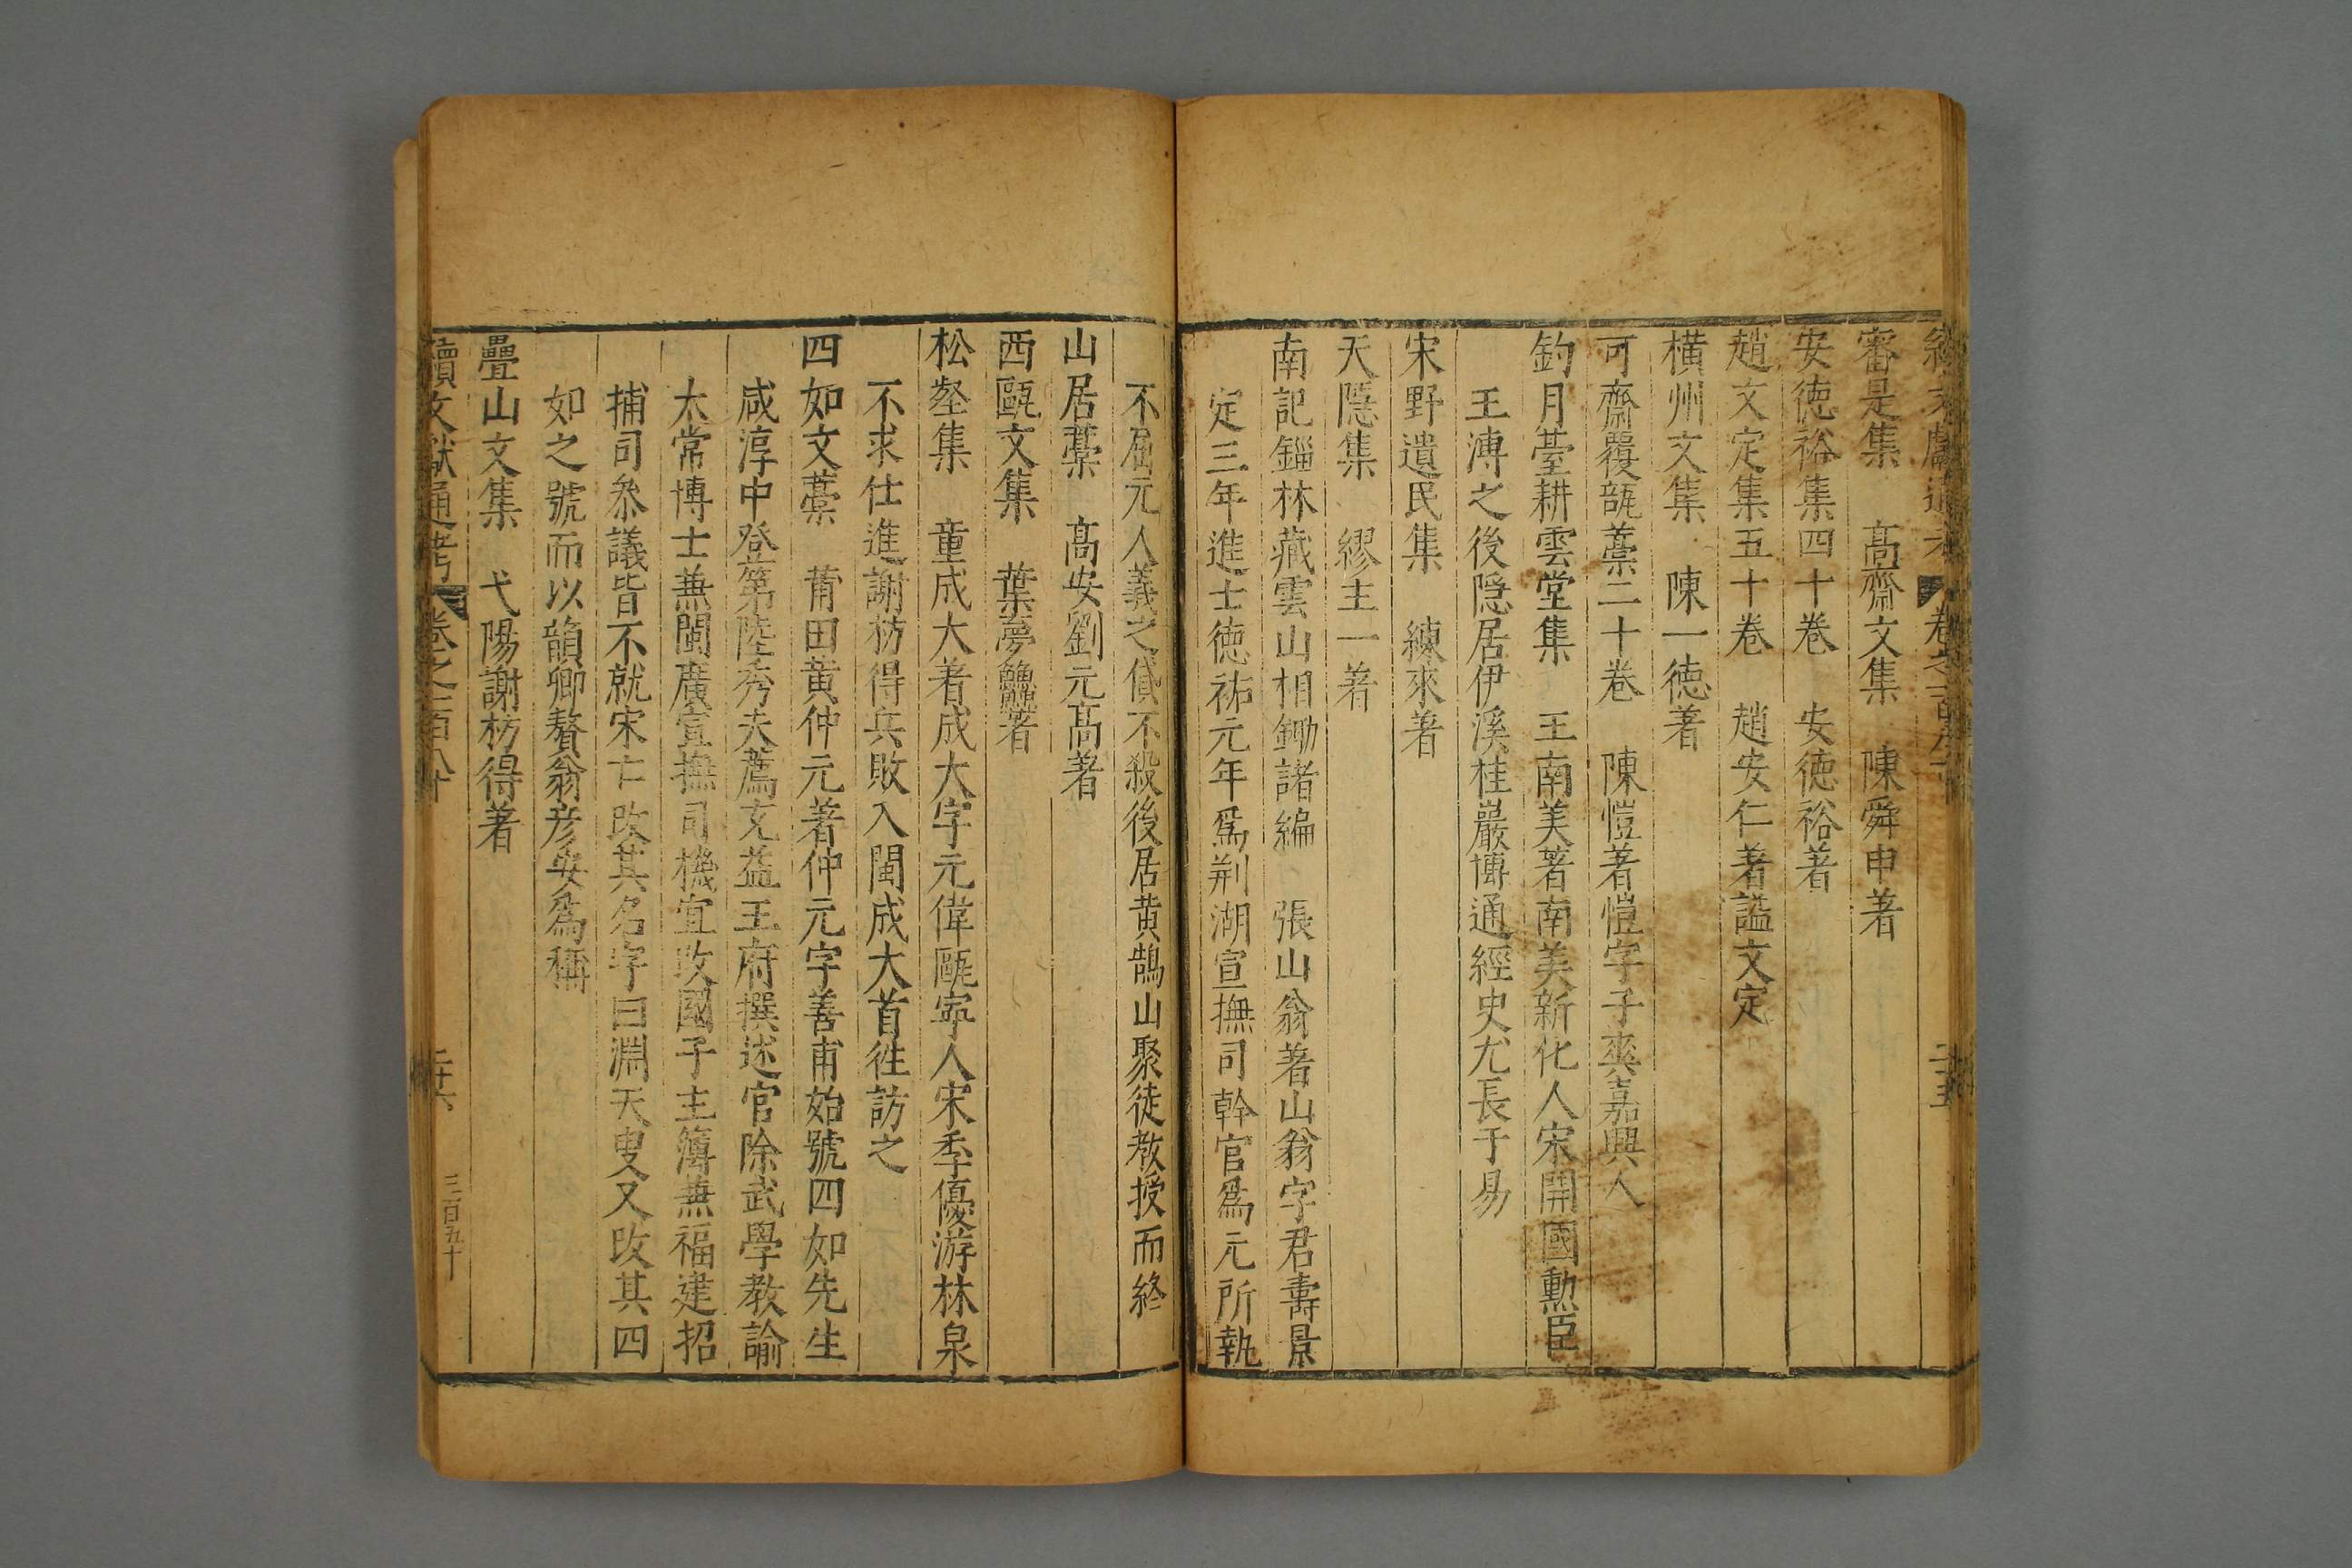 審是集　高齋文集　陳舜申著
安徳裕集四十卷　安徳裕著
趙文定集五十卷　趙安仁著謚文定
横州文集　陳一徳著
可齋覆瓿藁二十卷　陳愷著愷字子爽嘉興人
釣月臺耕雲堂集　王南美著南美新化人宋開國勲臣
王溥之後隠居伊溪桂巖博通經史尤長于易
宋野遺民集　練來著
天隠集　繆主一著
南記錙林藏雲山相鋤諸編　張山翁著山翁字君壽景
定三年進士徳祐元年爲荆湖宣撫司幹官爲元所執
不屈元人義之貸不殺後居黄鵠山聚徒教授而終
山居藁　髙安劉元髙著
西甌文集　葉夢鱻著
松壑集　童成大著成大字元偉甌寜人宋季優游林泉
不求仕進謝枋得兵敗入閩成大首徃訪之
四如文藁　莆田黄仲元著仲元字善甫始號四如先生
咸淳中登第陸秀夫薦充益王府撰述官除武學教諭
太常博士兼閩廣宣撫司機宜改國子主簿兼福建招
捕司叅議皆不就宋亡改其名字曰淵天叟又改其四
如之號而以韻卿贅翁彦安爲稱
疊山文集　弋陽謝枋得著
續文獻通考　卷之一百八十　二十六　三百五十